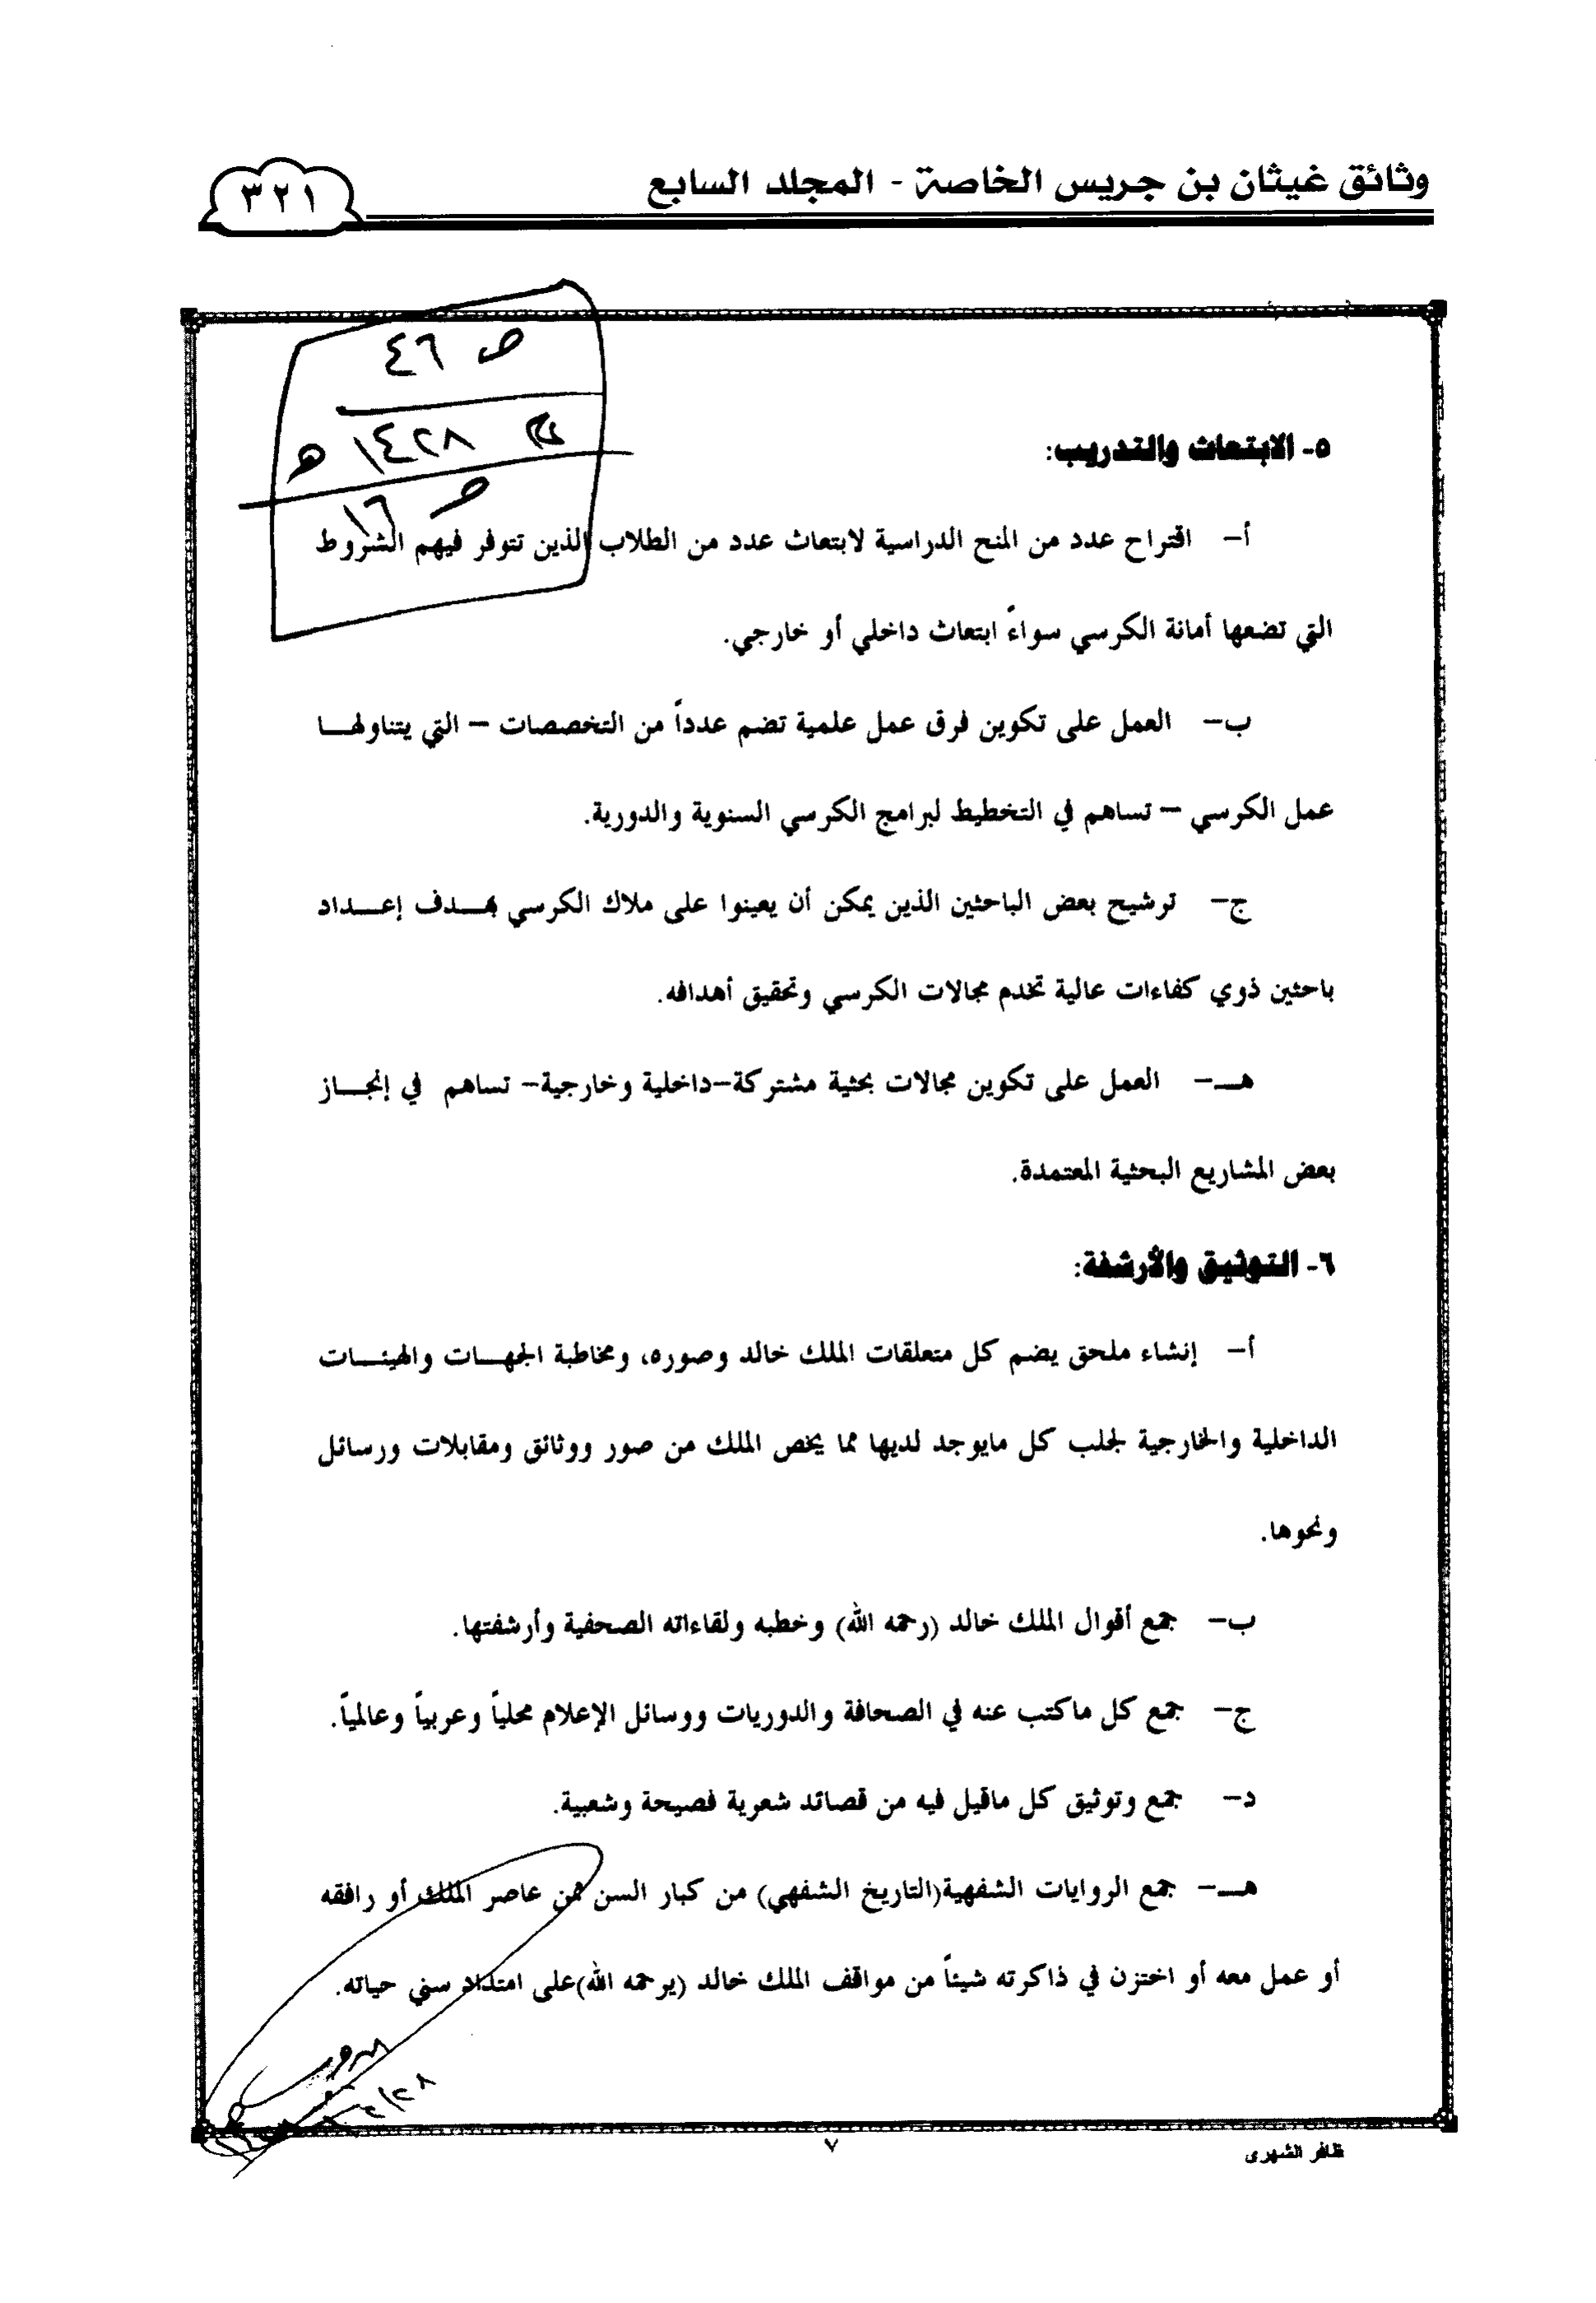 وثائق غيثان بن جريس الخاصة - المجلد السابع
٣٢١
ص ٤٦
١٤٢٨ هـ
ص ١٦
٥- الابتعاث والتدريب:
أ- اقتراح عدد من المنح الدراسية لابتعاث عدد من الطلاب الذين تتوفر فيهم الشروط
التي تضعها أمانة الكرسي سواءً ابتعاث داخلي أو خارجي.
ب- العمل على تكوين فرق عمل علمية تضم عدداً من التخصصات – التي يتناولهـــا
عمل الكرسي – تساهم في التخطيط لبرامج الكرسي السنوية والدورية.
ج- ترشيح بعض الباحثين الذين يمكن أن يعينوا على ملاك الكرسي بهـــدف إعـــداد
باحثين ذوي كفاءات عالية تخدم مجالات الكرسي وتحقيق أهدافه.
هــ- العمل على تكوين مجالات بحثية مشتركة-داخلية وخارجية- تساهم في إنجـــاز
بعض المشاريع البحثية المعتمدة.
٦- التوثيق والأرشفة:
أ- إنشاء ملحق يضم كل متعلقات الملك خالد وصوره، ومخاطبة الجهـــات والهيئـــات
الداخلية والخارجية لجلب كل مايوجد لديها مما يخص الملك من صور ووثائق ومقابلات ورسائل
ونحوها.
ب- جمع أقوال الملك خالد (رحمه الله) وخطبه ولقاءاته الصحفية وأرشفتها.
ج- جمع كل ماكتب عنه في الصحافة والدوريات ووسائل الإعلام محلياً وعربياً وعالمياً.
د- جمع وتوثيق كل ماقيل فيه من قصائد شعرية فصيحة وشعبية.
هــ- جمع الروايات الشفهية(التاريخ الشفهي) من كبار السن ممن عاصر الملك أو رافقه
أو عمل معه أو اختزن في ذاكرته شيئاً من مواقف الملك خالد (يرحمه الله)على امتداد سني حياته.
٧
ظافر الشهري